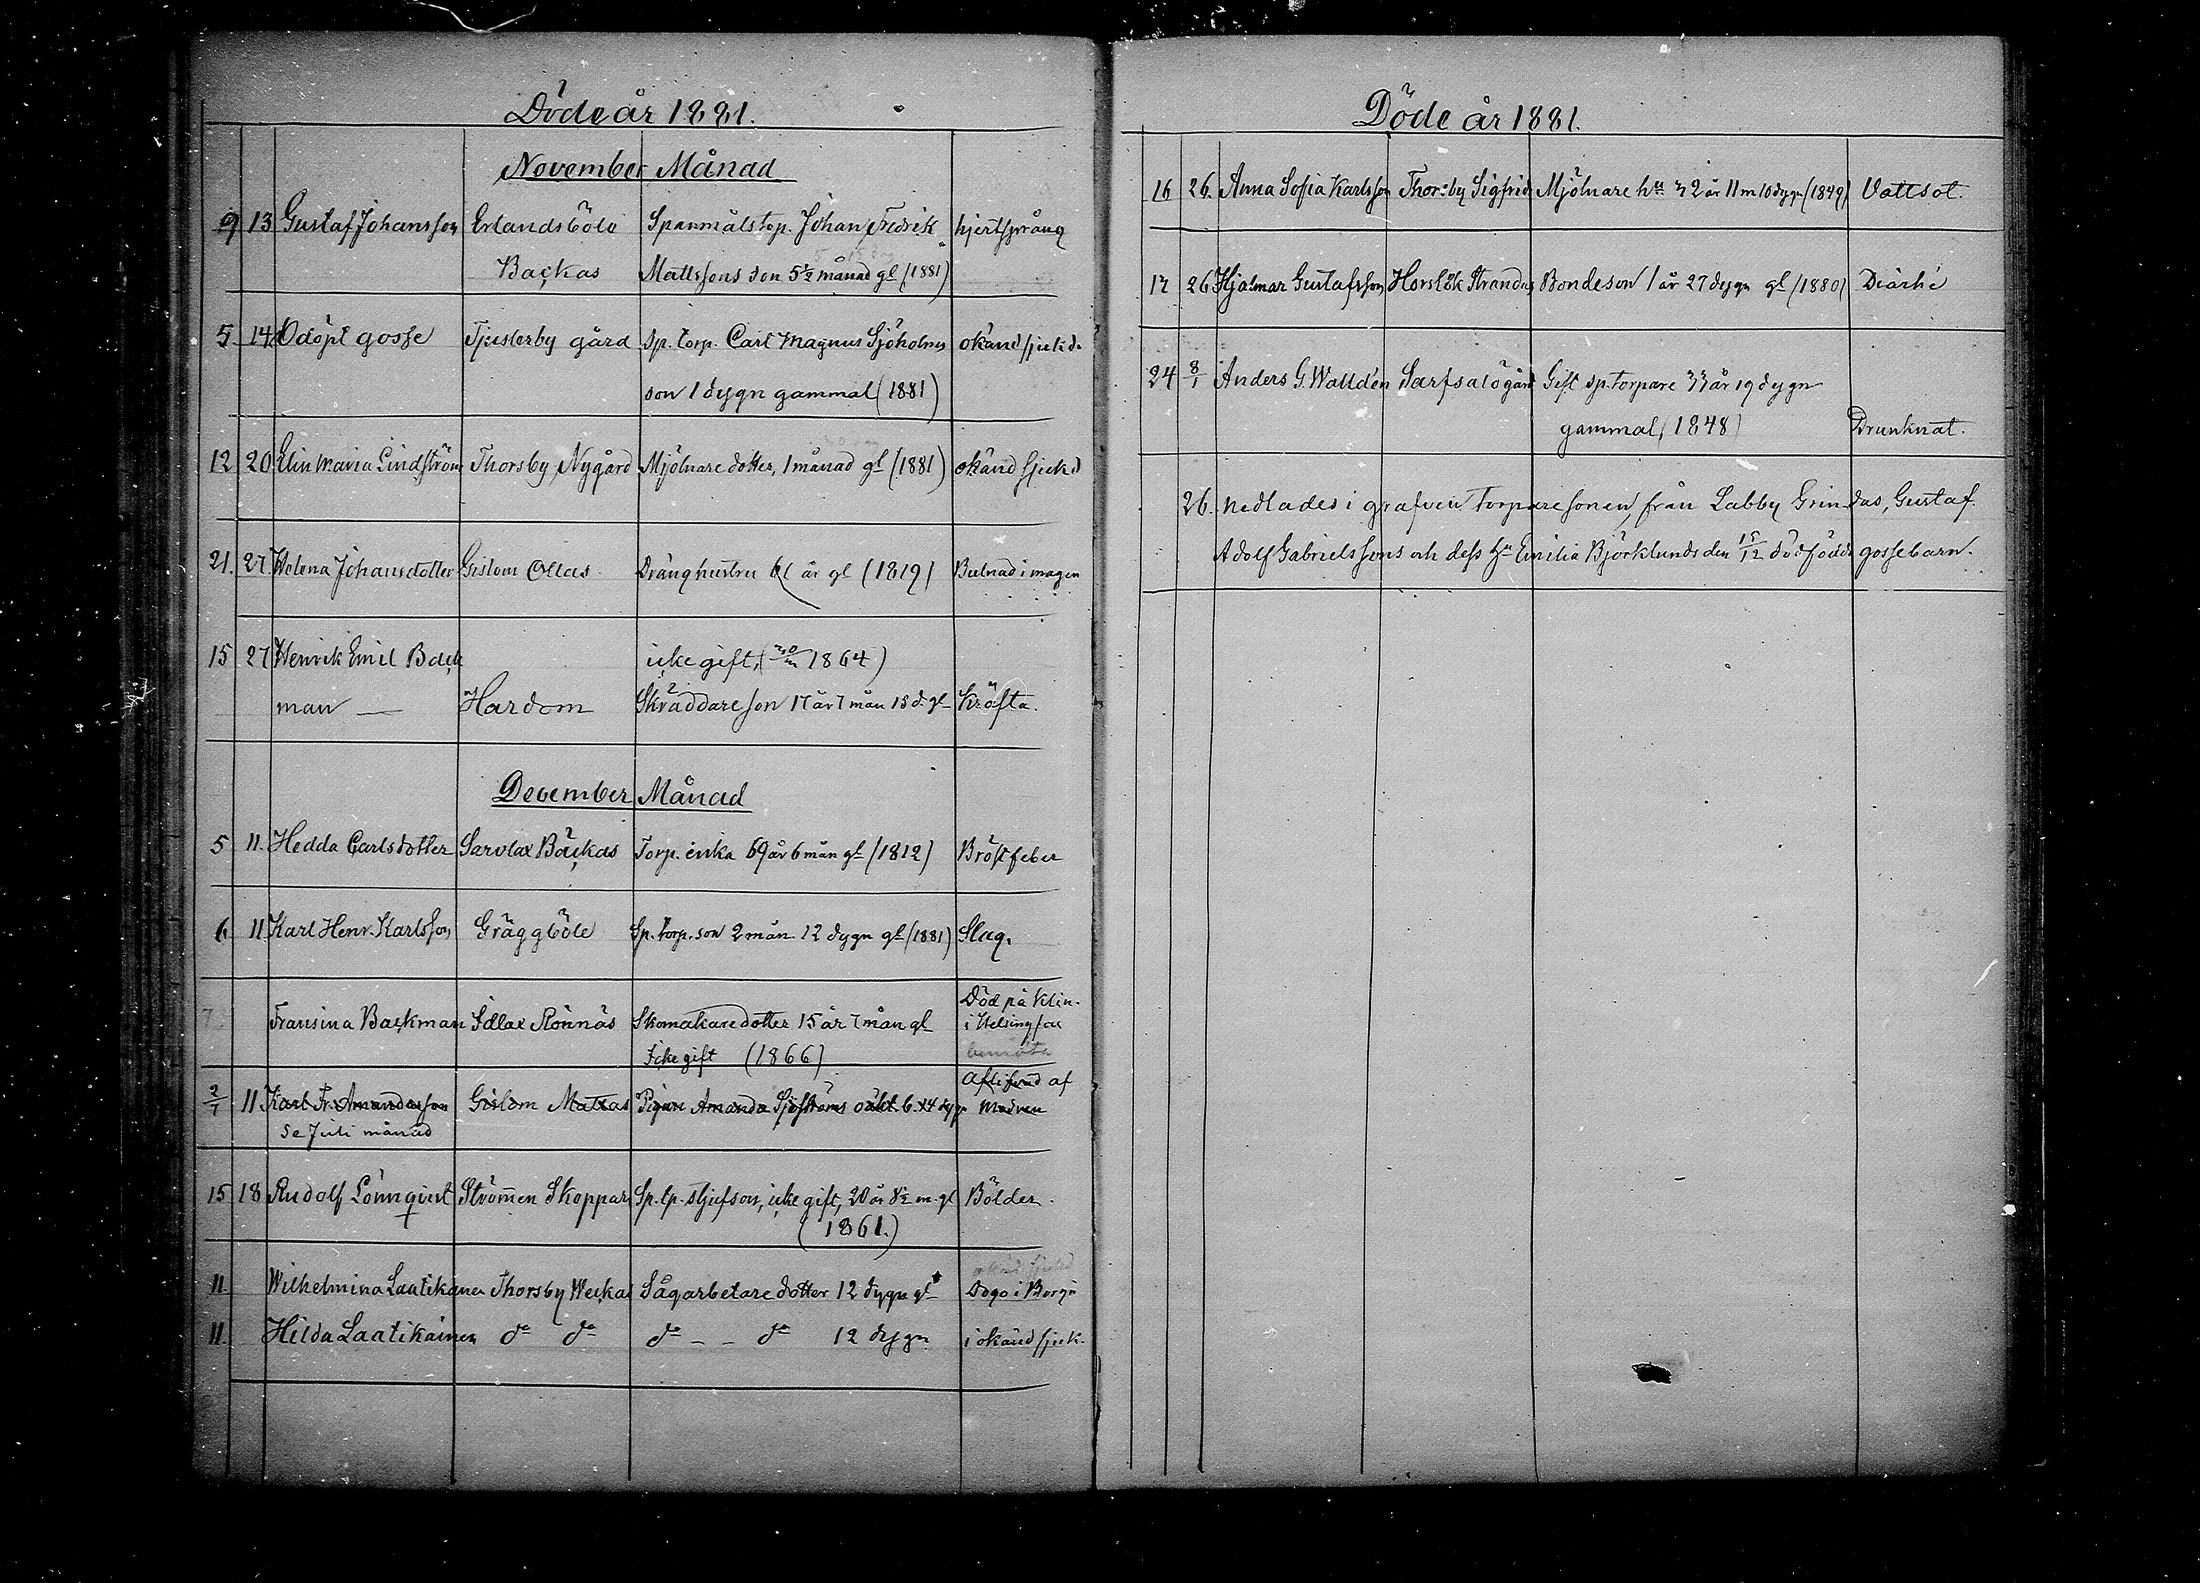 Döde år 1881.
November Månad
9 13 Gustaf Johansson Erlandsböle Spanmålstorp. Johan Fredrik hjertsprång
Backas Mattssons son 5½ månad gl (1881)
5. 14. Odöpt gosse Tjusterby gård Sp. torp. Carl Magnus Sjöholms okänd sjukd.
son 1 dygn gammal (1881)
12 20 Elin Maria Lindström Thorsby Nygård Mjölnare dotter, 1 månad gl (1881) okänd sjukd
21. 27. Helena Johansdotter Gislom Ollas Dränghustru 61 år gl (1819) Bulnad i magen
15 27 Henrik Emil Back icke gift, 1864)
man — Hardom Skräddare son 17 år 7 mån 15 d. gl Kräfta.
December Månad
5 11. Hedda Carlsdotter Sarvlax Backas Torp. enka 69 år 6 mån gl (1812) Bröstfeber
6 11 Karl Henr. Karlsson Gräggböle Sp. torp. son 2 mån 12 dygn gl (1881) Slag.
7 Fransina Backman Idlax Rönnäs Skomakaredotter 15 år 7 mån gl Död på Klin.
i Helsingfors
Icke gift (1866)
2/7 11 Karl Fr. Amandasson Gislom Mattas Pigan Amanda Sjöströms oäkt 6. 14 dyg Qfliford af modren
se Juli månad
15 18 Rudolf Lönnqvist Strömmen Skoppars Sp. tp. styfson, icke gift, 20 år 8½ m. gl Bölder.
(1861.)
11. Wilhelmina Laatikainen Thorsby Weckas Sågarbetare dotter 12 dygn gl Dogo i Borgå
11. Hilda Laatikainen do do do — — do 12 dygn i okänd sjuk.
Döde år 1881.
16 26. Anna Sofia Karlsson Thorsby Sigfrids Mjölnare hu 32 år 11 m 10 dygn (1849) Vattsot.
17 26 Hjalmar Gustafsson Horslök Strandas Bondeson 1 år 27 dygn gl (1880) Diarhé
24 8/1 Anders G. Walldén Sarfsalö gård Gift sp. torpare 33 år 19 dygn
gammal, (1848) Drunknat.
26. nedlades i grafven Torparesonen, från Labby Grindas, Gustaf
Adolf Gabrielssons och dess hu Emilia Björklunds den 15/12 dödfödde gossebarn.